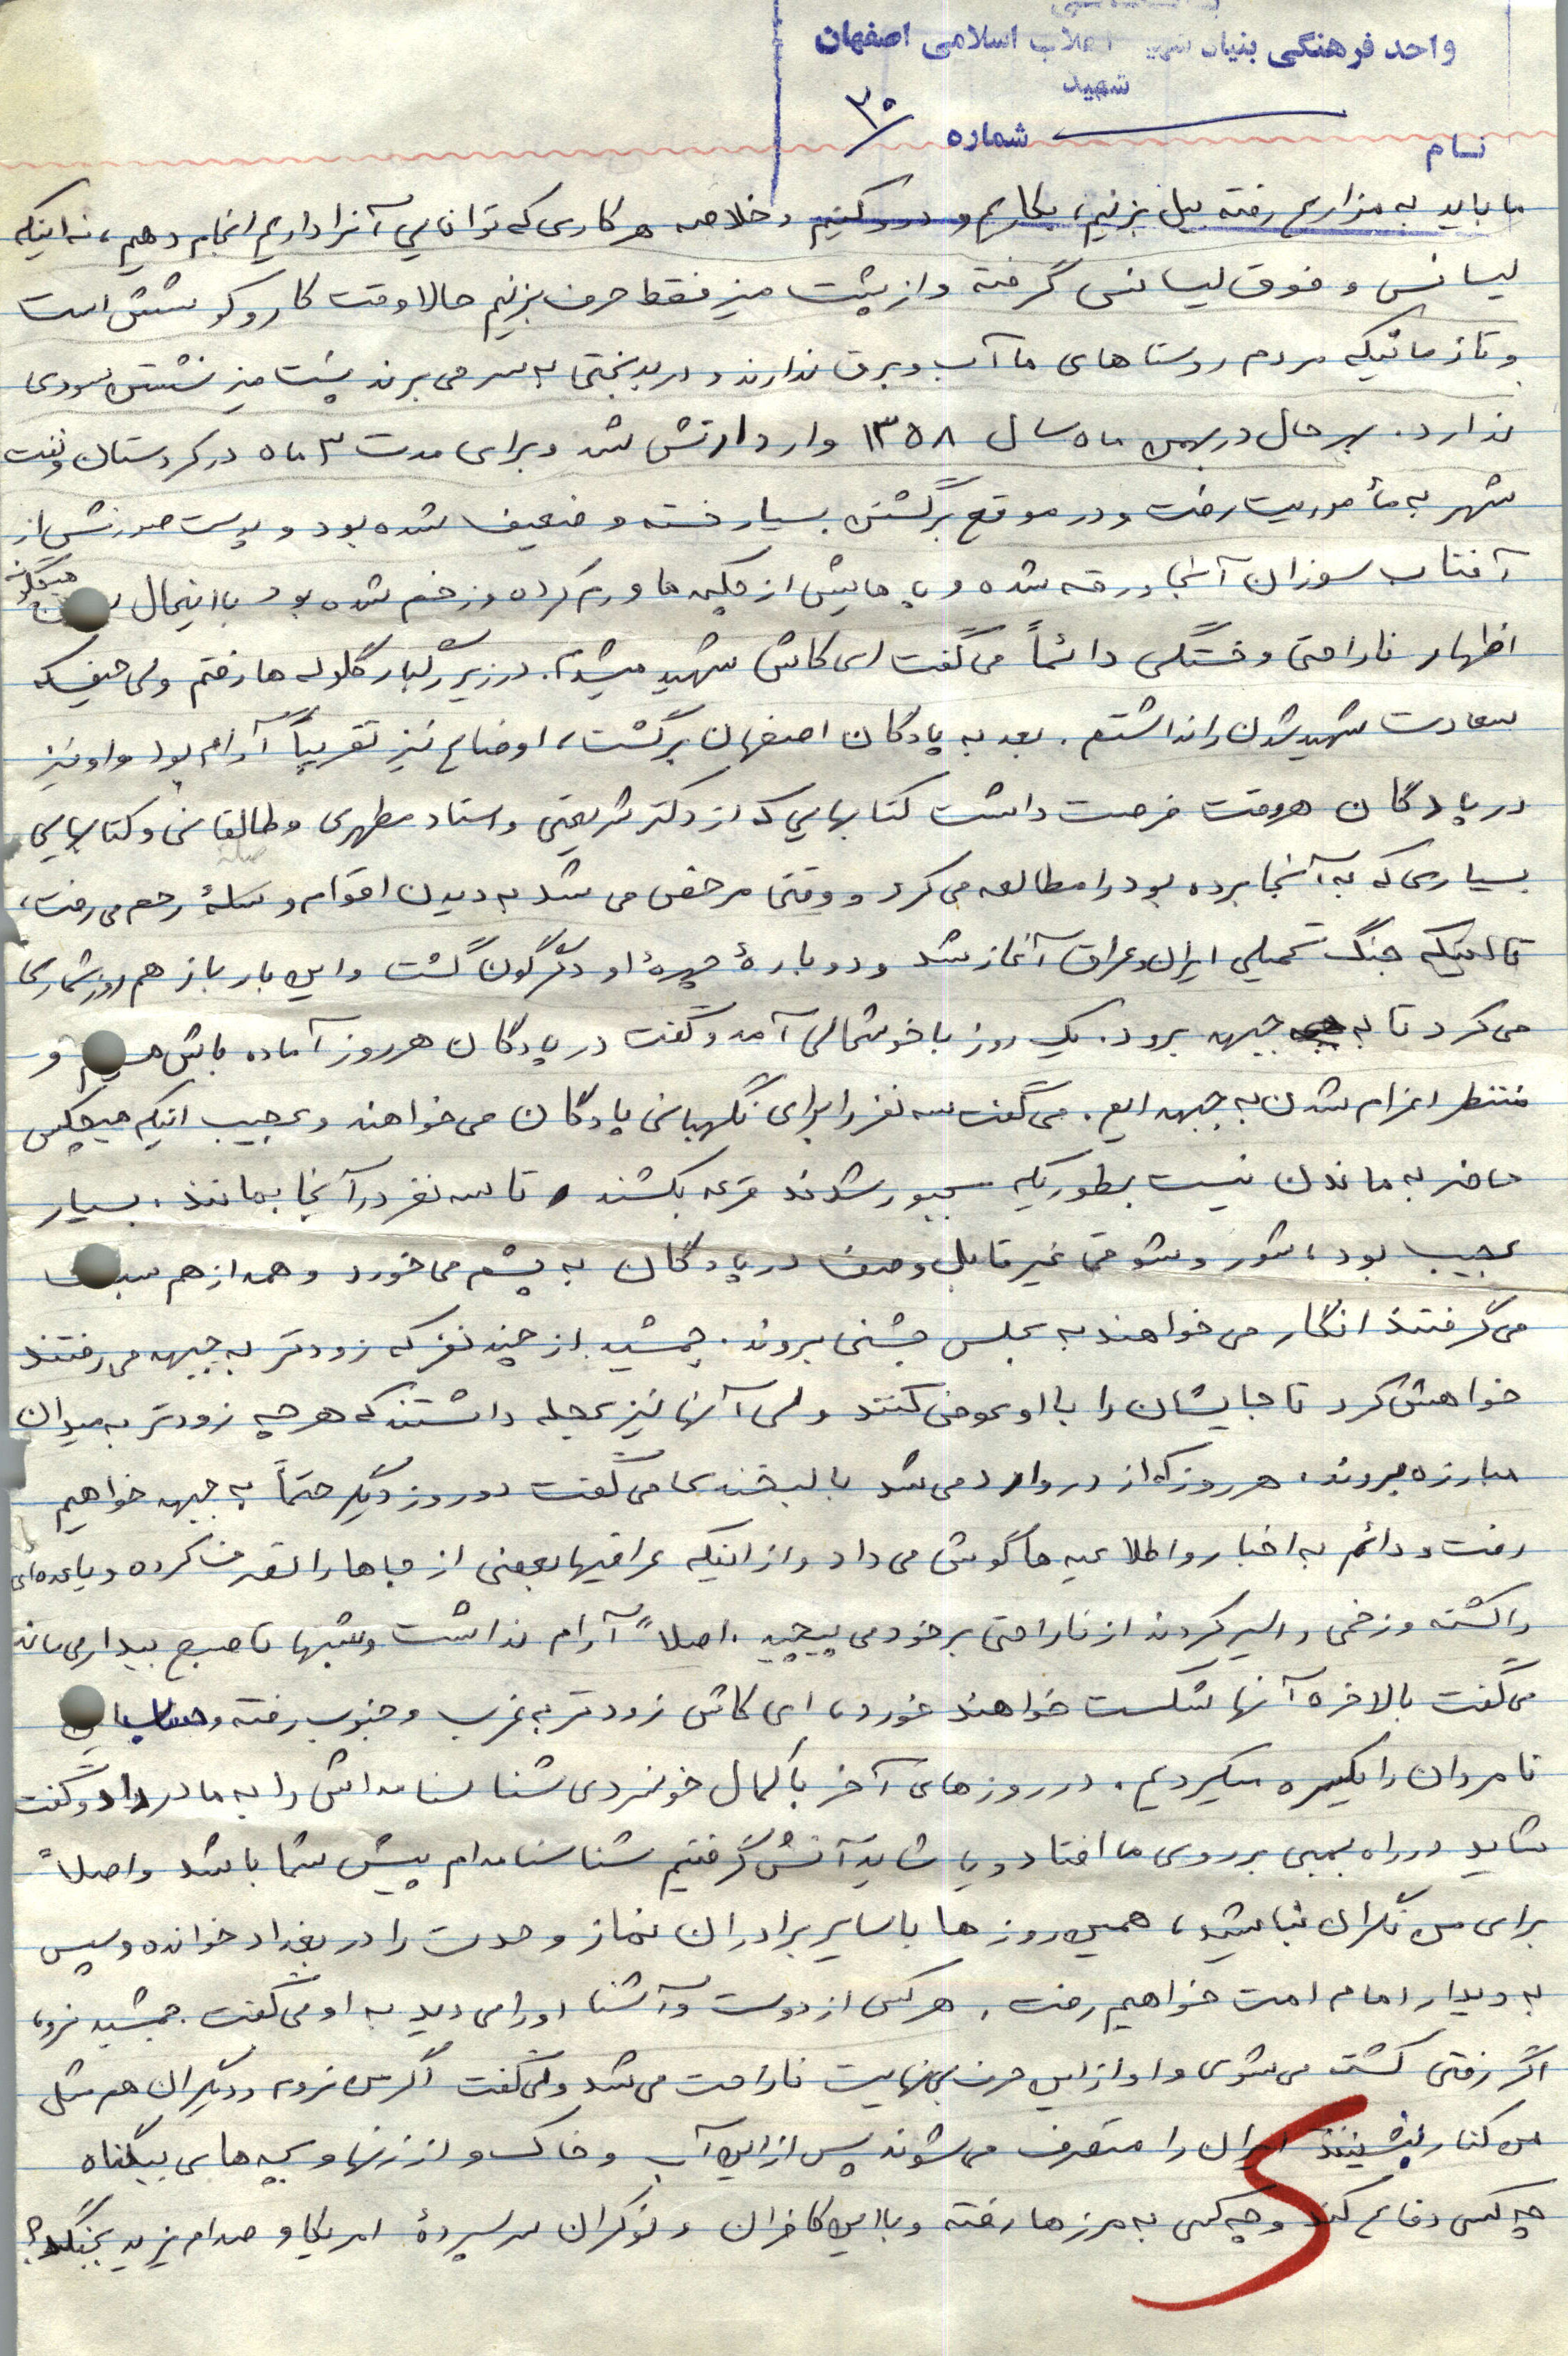 واحد فرهنگی بنیاد شهید انقلاب اسلامی اصفهان
شهید
نام
شماره ۳۰/
ما باید به مزارع رفته بیل بزنیم، بکاریم و درو کنیم و خلاصه هر کاری که توانایی آنرا داریم انجام دهیم، نه اینکه
لیسانس و فوق لیسانس گرفته و از پشت میز فقط حرف بزنیم حالا وقت کار و کوشش است
و تا زمانیکه مردم روستاهای ما آب و برق ندارند و در بدبختی به سر می برند پشت میز نشستن سودی
ندارد. بهر حال در بهمن ماه سال ۱۳۵۸ وارد ارتش شد و برای مدت ۳ ماه در کردستان و نفت
شهر به مأموریت رفت و در موقع برگشتن بسیار خسته و ضعیف شده بود و پوست صورتش از
آفتاب سوزان آنجا ورقه شده و پاهایش از چکمه ها ورم کرده و زخم شده بود با اینحال بدون هیچگونه
اظهار ناراحتی و خستگی دائماً می گفت ای کاش شهید میشدم. در زیر رگبار گلوله ها رفتم ولی حیف که
سعادت شهید شدن را نداشتم. بعد به پادگان اصفهان برگشت، اوضاع نیز تقریباً آرام بود و او نیز
در پادگان هروقت فرصت داشت کتابهایی که از دکتر شریعتی و استاد مطهری و طالقانی و کتابهایی
بسیاری که به آنجا برده بود را مطالعه می کرد و وقتی مرخص می شد به دیدن اقوام و صلهٔ رحم می رفت،
تا اینکه جنگ تحمیلی ایران و عراق آغاز شد و دوباره چهرهٔ او دگرگون گشت و این بار باز هم روزشماری
می کرد تا به جبهه برود. یک روز با خوشحالی آمد و گفت در پادگان هر روز آماده باش هستیم و
منتظر اعزام شدن به جبهه ایم. می گفت سه نفر را برای نگهبانی پادگان می خواهند و عجیب اینکه هیچکس
حاضر به ماندن نیست بطوریکه مجبور شدند قرعه بکشند تا سه نفر در آنجا بمانند. بسیار
عجیب بود، شور و شوقی غیر قابل وصف در پادگان به چشم می خورد و همه از هم سبقت
می گرفتند انگار می خواهند به مجلس جشنی بروند. جمشید از چند نفر که زودتر به جبهه می رفتند
خواهش کرد تا جایشان را با او عوض کنند ولی آنها نیز عجله داشتند که هر چه زودتر به میدان
مبارزه بروند. هر روز که از در وارد می شد با لبخندی می گفت دو روز دیگر حتماً به جبهه خواهیم
رفت و دائم به اخبار و اطلاعیه ها گوش می داد و از اینکه عراقیها بعضی از جاها را تصرف کرده و یا عده ای
را کشته و زخمی و اسیر کردند از ناراحتی بر خود می پیچید. اصلاً آرام نداشت و شبها تا صبح بیدار می ماند
می گفت بالاخره آنها شکست خواهند خورد، ای کاش زودتر به غرب و جنوب رفته و حساب این
نامردان را یکسره میکردیم. در روزهای آخر با کمال خونسردی شناسنامه اش را به مادر داد و گفت
شاید در راه بمبی بر روی ما افتاد و یا شاید آتش گرفتیم شناسنامه ام پیش شما باشد و اصلاً
برای من نگران نباشید، همین روزها با سایر برادران نماز وحدت را در بغداد خوانده و سپس
به دیدار امام امت خواهیم رفت. هر کس از دوست و آشنا او را می دید به او می گفت. جمشید نرو،
اگر رفتی کشته می شوی و او از این حرف بی نهایت ناراحت می شد و می گفت اگر من نروم و دیگران هم مثل
من کنار بنشینند ایران را متصرف می شوند پس از این آب و خاک و از زنها و بچه های بیگناه
چه کسی دفاع کند و چه کسی به مرزها رفته و با این کافران و نوکران سرسپردهٔ امریکا و صدام یزید بجنگد؟